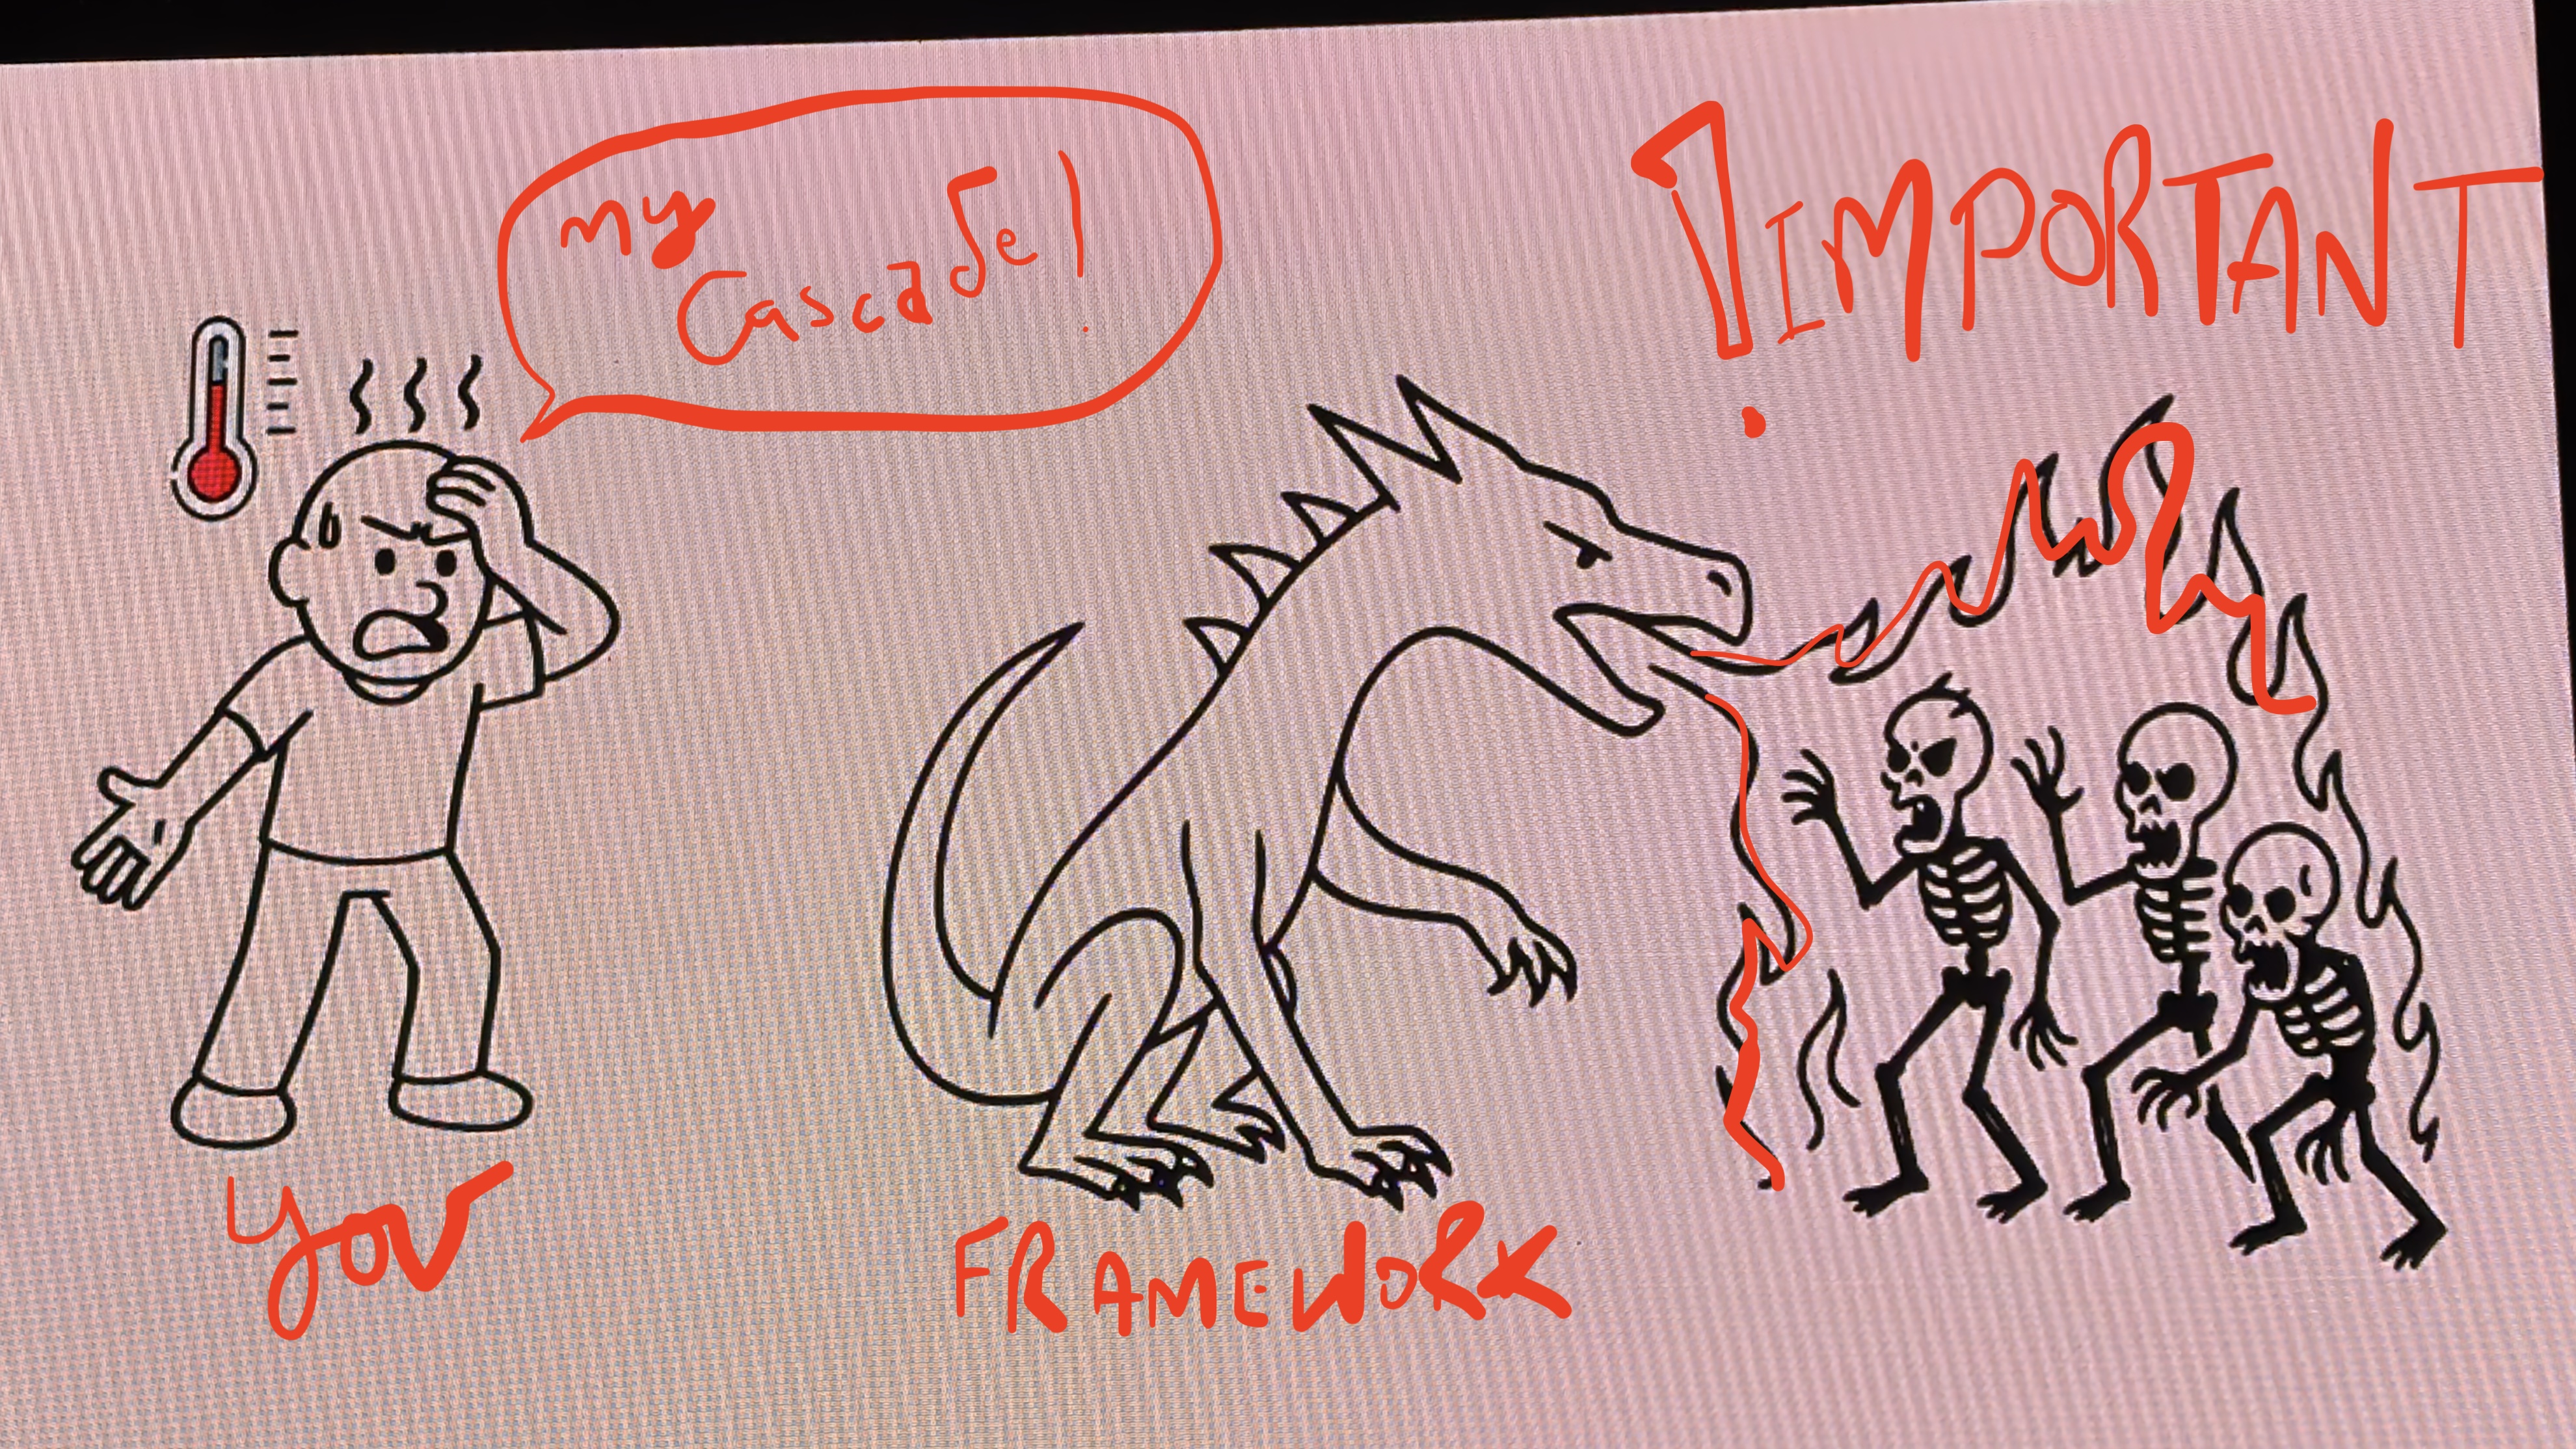 My
Cascade!
!IMPORTANT
You
FRAMEWORK